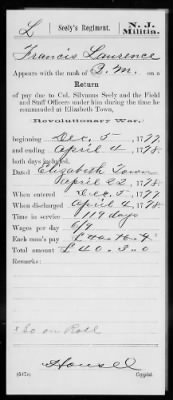 L | Seely's Regiment. | N. J. Militia.
Francis Laurence
Appears with the rank of Q. M. on a
Return
of pay due to Col. Silvanus Seely and the Field
and Staff Officers under him during the time he
commanded at Elizabeth Town,
Revolutionary War:
beginning Dec. 5, 1777,
and ending April 4, 1778,
both days included.
Dated Elizabeth Town
April 22, 1778.
When entered Dec. 5, 1777
When discharged April 4, 1778
Time in service 119 days
Wages per day 6/9
Each man's pay £40 "
Total amount £40. 3. 0
Remarks:
* So on Roll
Housel
Copyist.